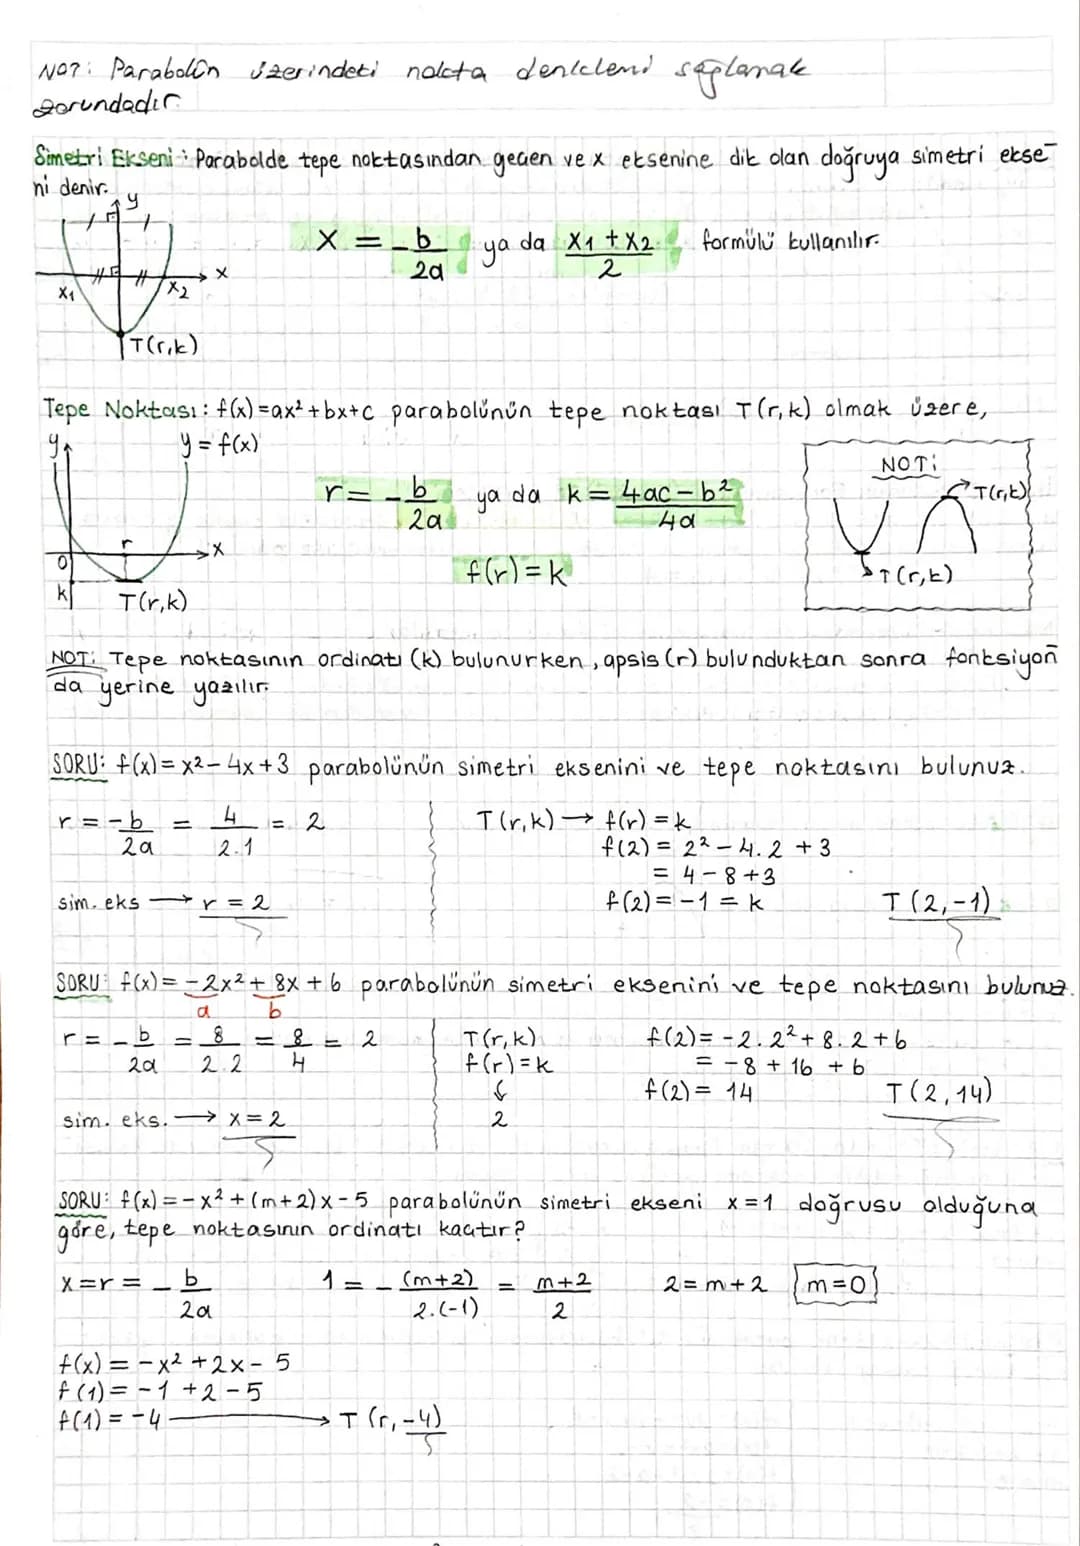 NOT: Parabolün üzerindeki nokta denklemi sağlamak
zorundadır.
Simetri Ekseni: Parabolde tepe noktasından geçen ve x eksenine dik olan doğruya simetri ekse-
ni denir.
y
x = -b/2a ya da x1+x2/2 formülü kullanılır.
x
x1 x2
T(r,k)
Tepe Noktası: f(x)=ax²+bx+c parabolünün tepe noktası T(r,k) olmak üzere,
y y=f(x)
NOT:
r = -b/2a ya da k = 4ac-b²/4a
T(r,k)
r x
0
f(r)=k
T(r,k)
k T(r,k)
NOT: Tepe noktasının ordinatı (k) bulunurken, apsis (r) bulunduktan sonra fonksiyon
da yerine yazılır.
SORU: f(x)=x²-4x+3 parabolünün simetri eksenini ve tepe noktasını bulunuz.
r = -b/2a = 4/2.1 = 2
T(r,k) → f(r)=k
f(2) = 2²-4.2+3
= 4-8+3
sim. eks → r=2
f(2)=-1=k T(2,-1)
SORU: f(x)=-2x²+8x+6 parabolünün simetri eksenini ve tepe noktasını bulunuz.
a b
r = -b/2a = 8/2.2 = 8/4 = 2
T(r,k) f(2)=-2.2²+8.2+6
f(r)=k = -8+16+6
f(2)=14 T(2,14)
sim. eks. → x=2
2
SORU: f(x)=-x²+(m+2)x-5 parabolünün simetri ekseni x=1 doğrusu olduğuna
göre, tepe noktasının ordinatı kaçtır?
x=r= -b/2a 1 = -(m+2)/2.(-1) = m+2/2 2=m+2 m=0
f(x)=-x²+2x-5
f(1)=-1+2-5
f(1)=-4 → T(r,-4)